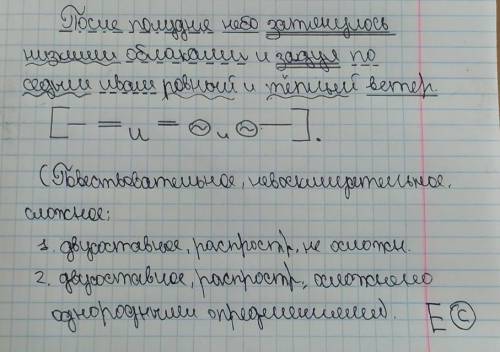 После полудня небо затянулось
низкими облаками и задул по
седым ивам ровный и тёплый ветер.
[— = и = ~ и ~ —].
(Повествовательное, невосклицательное,
сложное;
1. двусоставное, распростр, не осложн.
2. двусоставное, распростр, осложнено
однородными определениями).
Е С